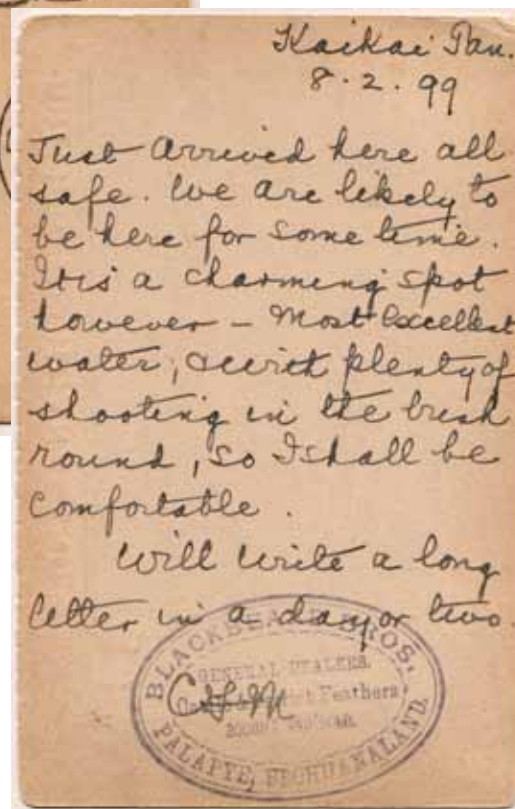 Kaikai Pan.
8.2.99
Just arrived here all
safe. We are likely to
be here for some time.
It is a charming spot
however – Most Excellent
water, & with plenty of
shooting in the bush
round, so I shall be
comfortable.
Will write a long
letter in a day or two.
BLACKBEARD BROS.
GENERAL DEALERS.
Feathers
PALAPYE, BECHUANALAND.